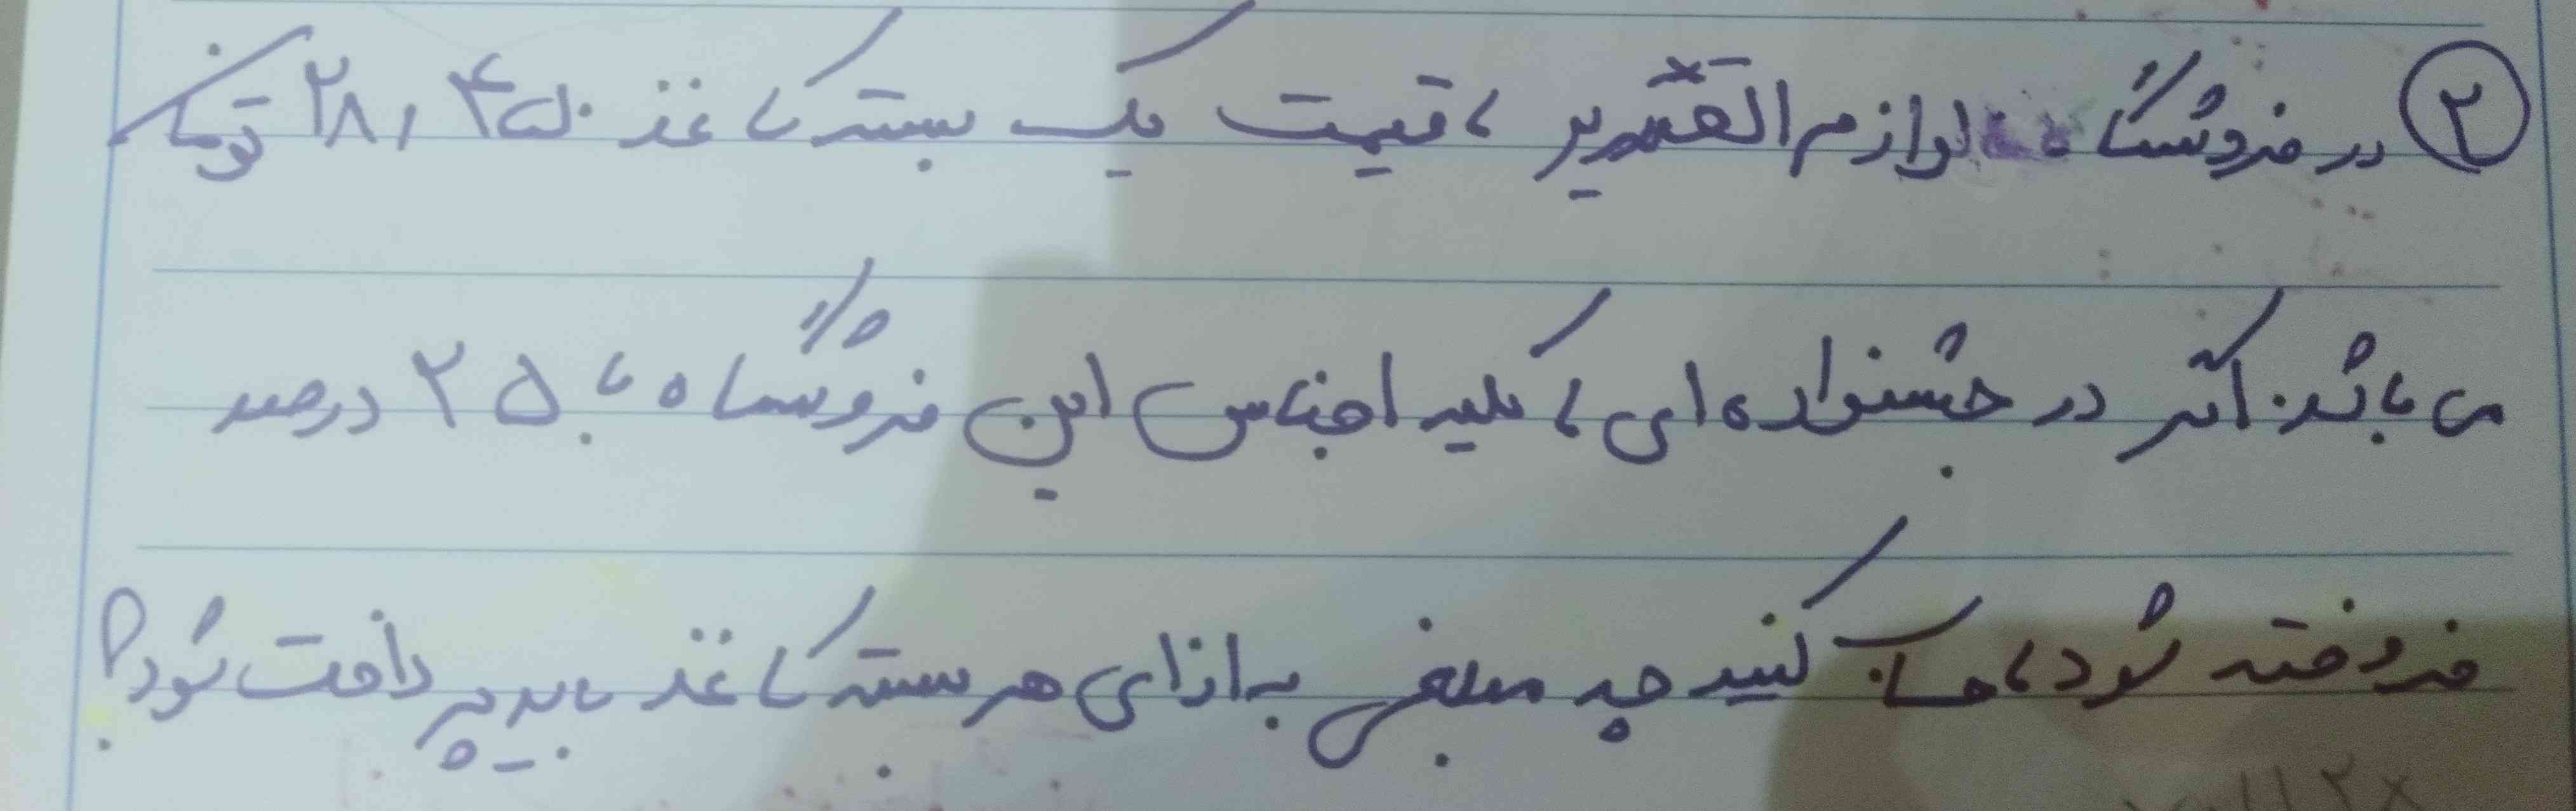 ۲ در فروشگاه لوازم التحریر ، قیمت یک بسته کاغذ ۲۸,۴۵۰ تومان
می باشد. اگر در جشنواره ای ، کلیه اجناس این فروشگاه با ۲۵ درصد
فروخته شود ، حساب کنید چه مبلغی به ازای هر بسته کاغذ باید پرداخت شود؟